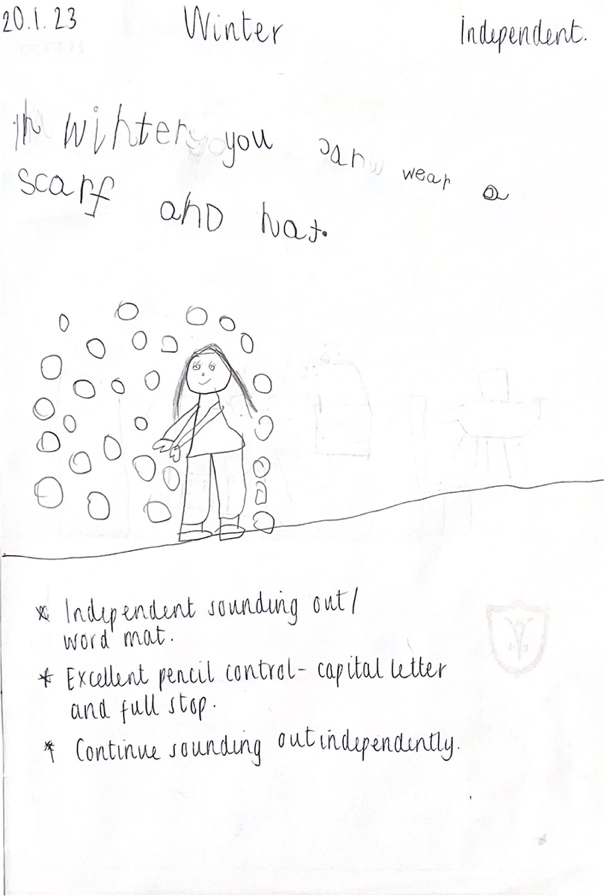 20.1.23 Winter Independent.
In winter you can wear a
scarf and hat.
* Independent sounding out/
word mat.
* Excellent pencil control - capital letter
and full stop.
* Continue sounding out independently.